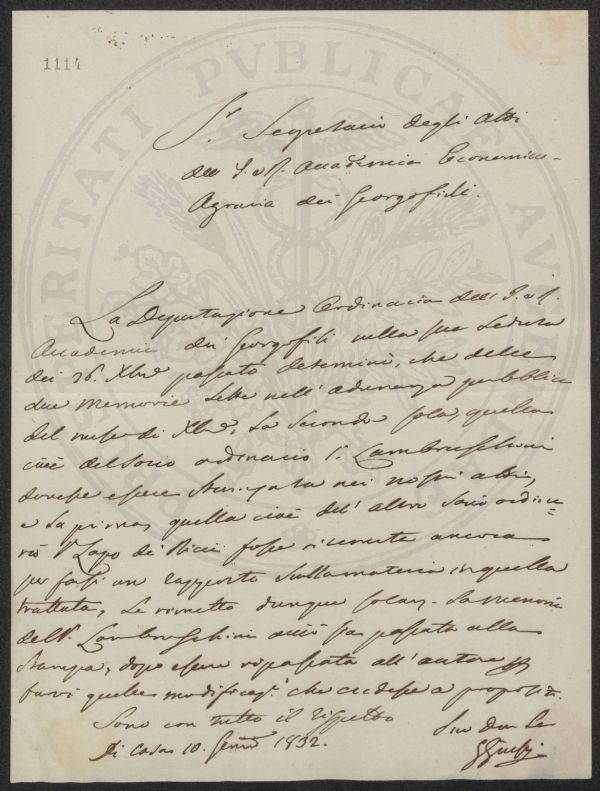 1114
PROSPERITATI PVBLICAE AVGENDAE
S.r Segretario degli Atti
dell' I. e R. Accademia Economico-
Agraria dei Georgofili.
La Deputazione Ordinaria dell' I. e R.
Accademia dei Georgofili nella sua Seduta
dei 26. Xbre passato determinò, che delle
due Memorie lette nell' adunanza pubblica
del mese di Xbre, la Seconda sola, quella
cioè del Socio ordinario S.r Lambruschini
dovesse essere stampata nei nostri atti,
e la prima quella cioè del' altro Socio ordina=
rio S.r Lapo de' Ricci fosse ritenuta ancora
per farsi un rapporto sulla materia in quella
trattata, Le rimetto dunque sola la memoria
del S.r Lambruschini acciò sia passata alla
stampa, dopo essere ripassata all' autore
farvi quelle modificaz.i che credesse a proposito.
Sono con tutto il rispetto
Di Casa 10. Genn.o 1832.
Suo Dev. Se